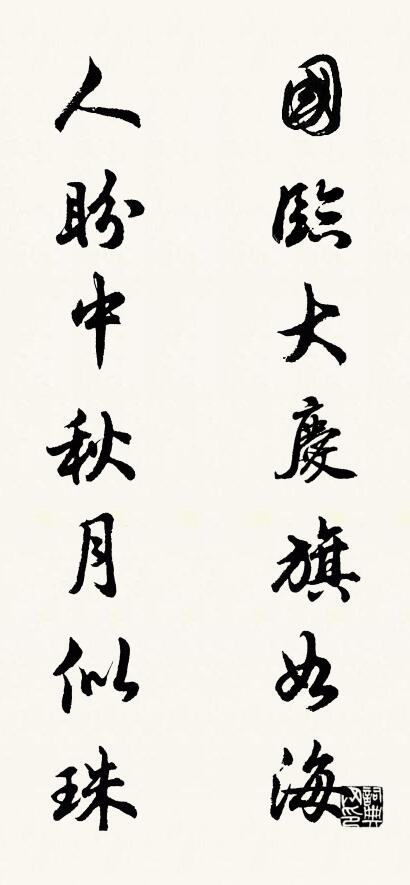 國臨大慶旗如海
人盼中秋月似珠